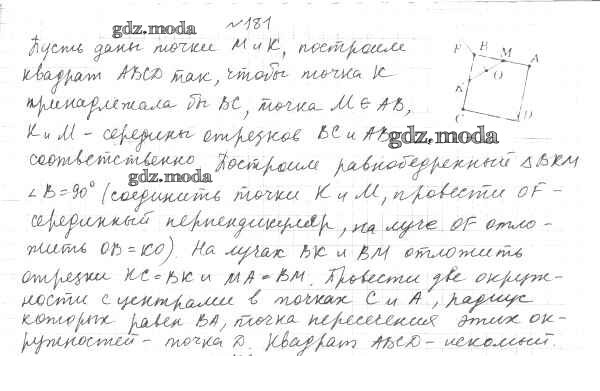 gdz.moda
№181
Пусть даны точки M и K, построим
квадрат ABCD так, чтобы точка K
принадлежала бы BC, точка M ∈ AB,
K и M - середины отрезков BC и AB
gdz.moda
соответственно. Построим равнобедренный △BKM
gdz.moda
∠B = 90° (соединить точки K и M, провести OF -
серединный перпендикуляр, на луче OF отло-
жить OB = KO). На лучах BK и BM отложить
отрезки KC = BK и MA = BM. Провести две окруж-
ности с центрами в точках C и A, радиус
которых равен BA, точка пересечения этих ок-
ружностей - точка D. Квадрат ABCD - искомый.
F B M A
O
K
C D